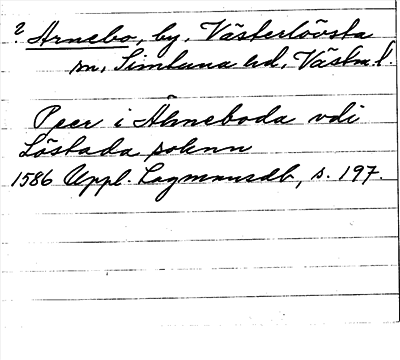 ? Arnebo, by, Västerlövsta
sn, Simtuna hd, Västm. l.
Peer i Åhneboda vdi
Löstada soknn
1586 Uppl. Lagmansdb, s. 197.